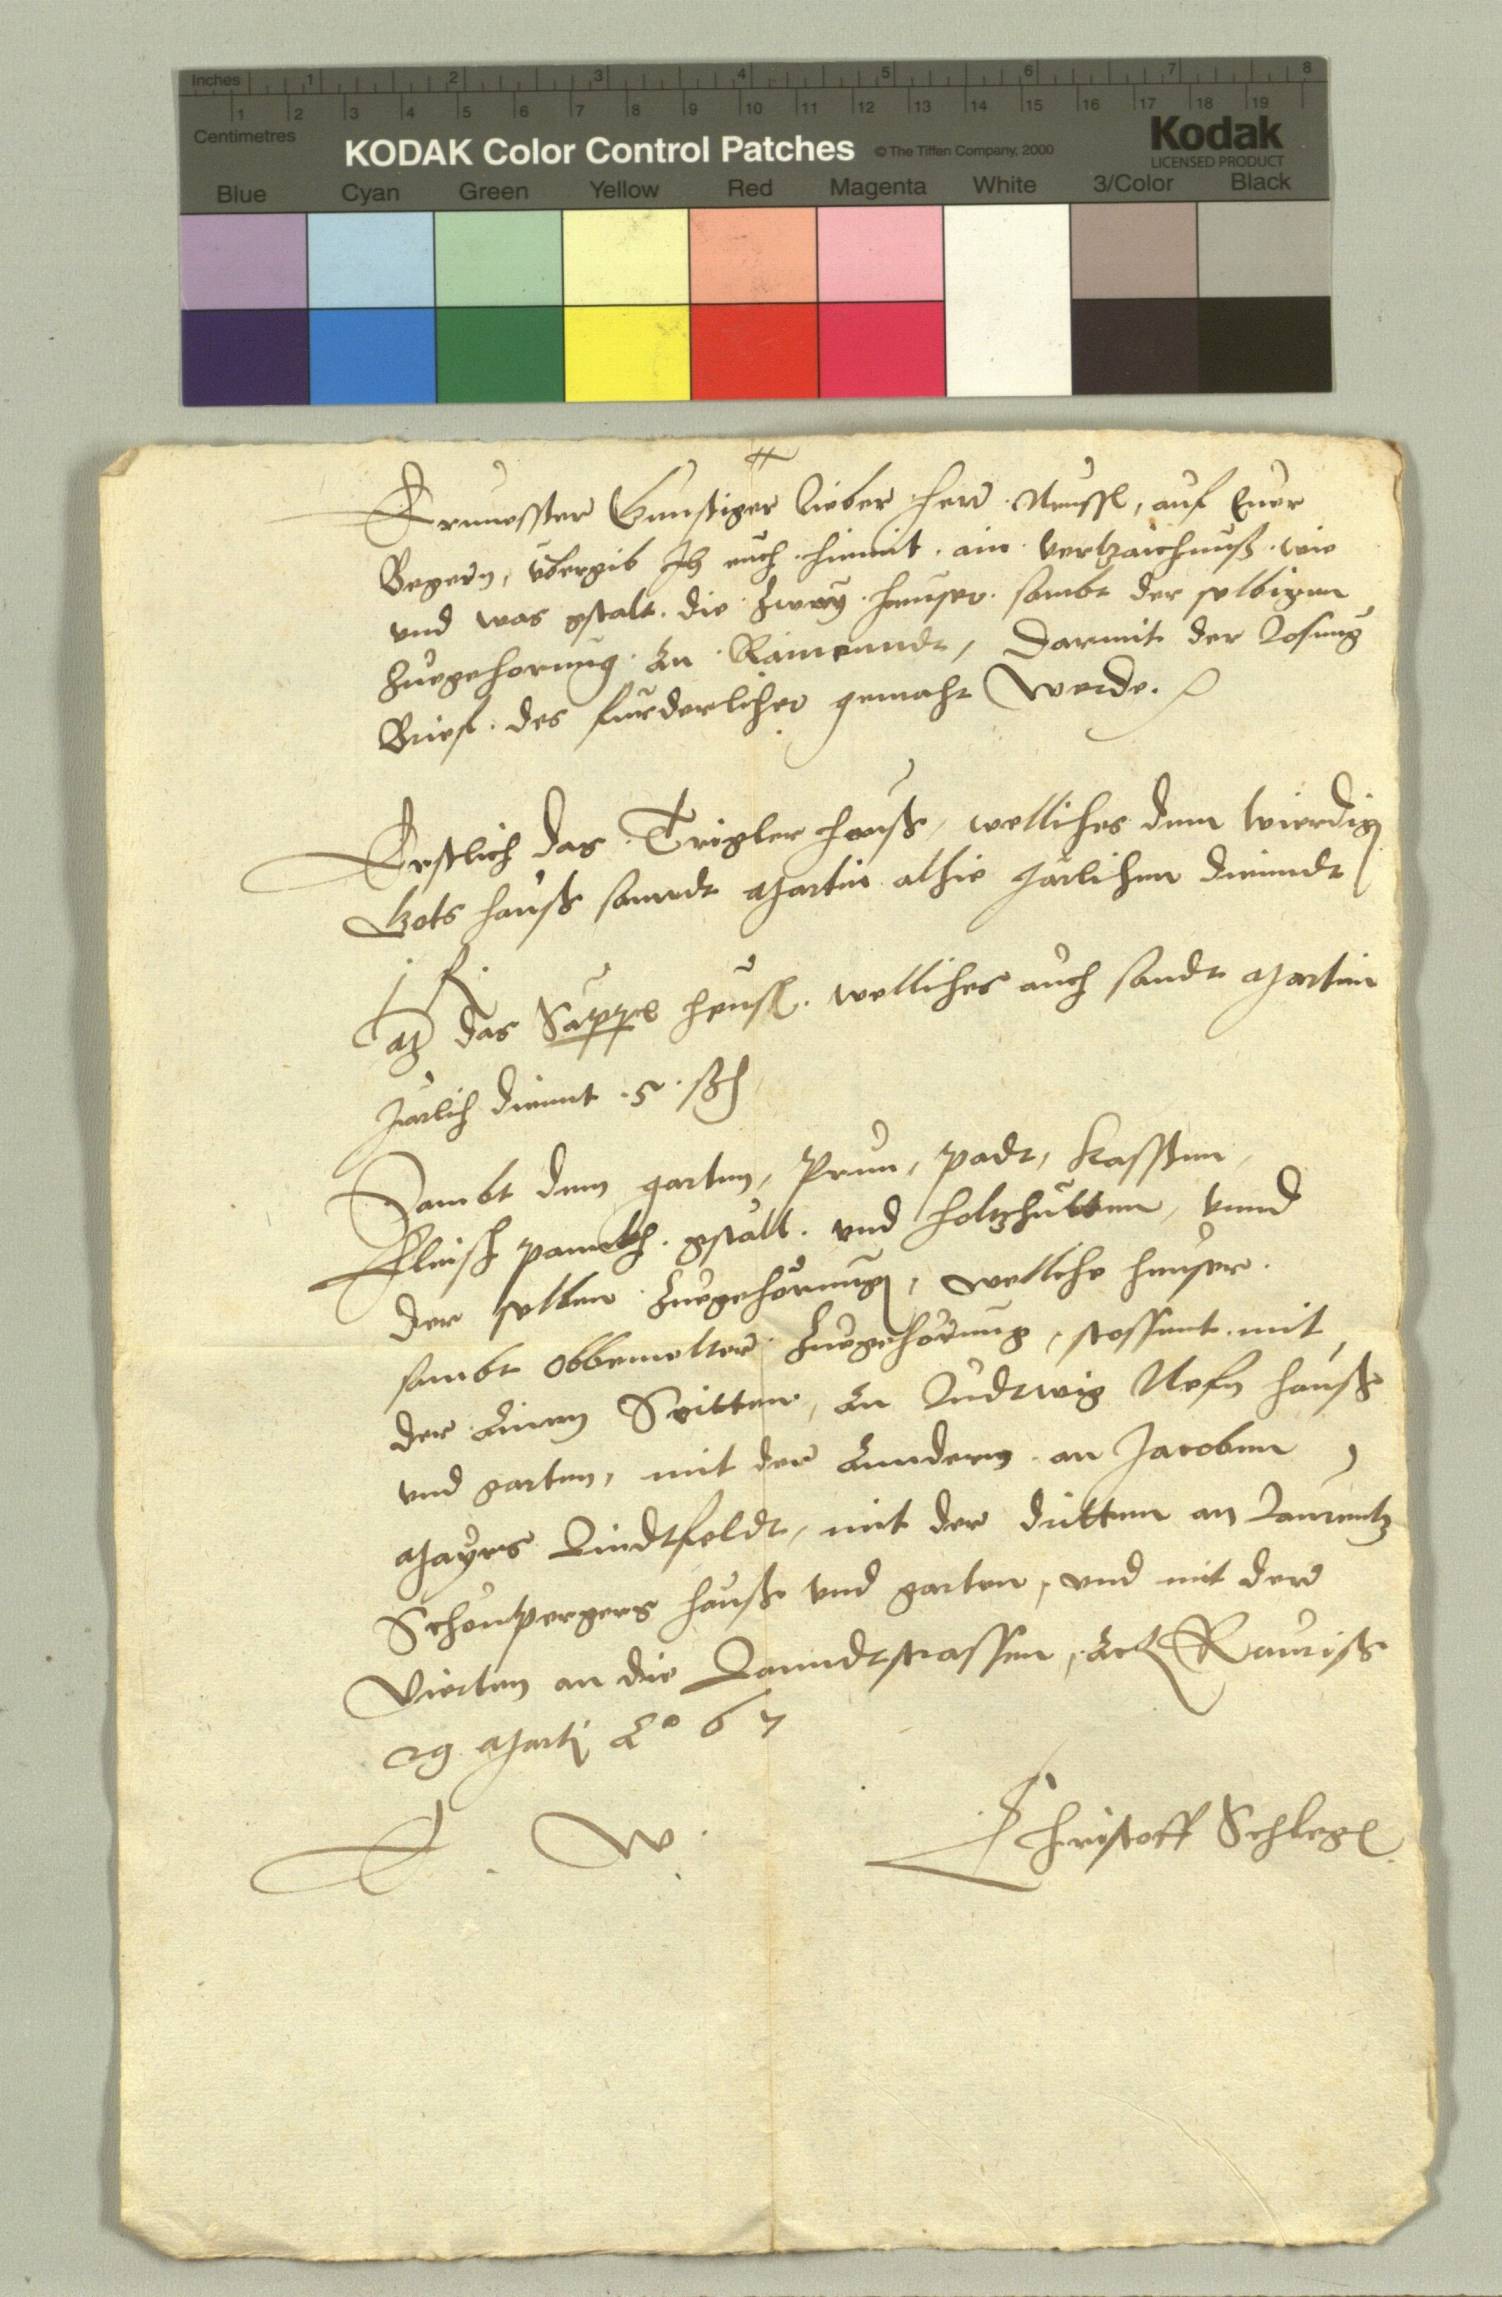 Inches 1 2 3 4 5 6 7 8
1 2 3 4 5 6 7 8 9 10 11 12 13 14 15 16 17 18 19
Centimetres
KODAK Color Control Patches © The Tiffen Company, 2000 Kodak
LICENSED PRODUCT
Blue Cyan Green Yellow Red Magenta White 3/Color Black
Ernuesster Gunstiger lieber herr, auf Euer
Begern, übergib Ich euch hiemit ain vertzaichnuß wie
vnd was gstalt die zway heuser sambt der selbigen
Zuegehorung an Rainenndt, Darmit der Losung
Brief des fürderlicher gemaht Werde.
Erstlich das Trigler hauß, welliches dem wierdig
Gots hauß sanndt Martin alhie Järlichen dienndt
1 ß
Mer das Säppel heusl welliches auch sandt Martin
Järlich diennt 5 ß
Sambt dem garten, Prun, padt, kassten,
Fleisch panckh gstall vnd holtzhütten, vnnd
der selben Zuegehörung, welliche heuser
sambt obbemelter Zuegehörung, stossent mit
der Ainen Seitten, an Ludtwig Nefn hauß
vnd garten, mit der Anndern an Jacoben
Mayrs Lindtfeldt, mit der dritten an Laurentz
Schönpergers hauß vnd garten, vnd mit der
Vierten an die Lanndtstrassen, Act Rauriß
29 Martj Ao 67
E. W.
Christoff Schlegl